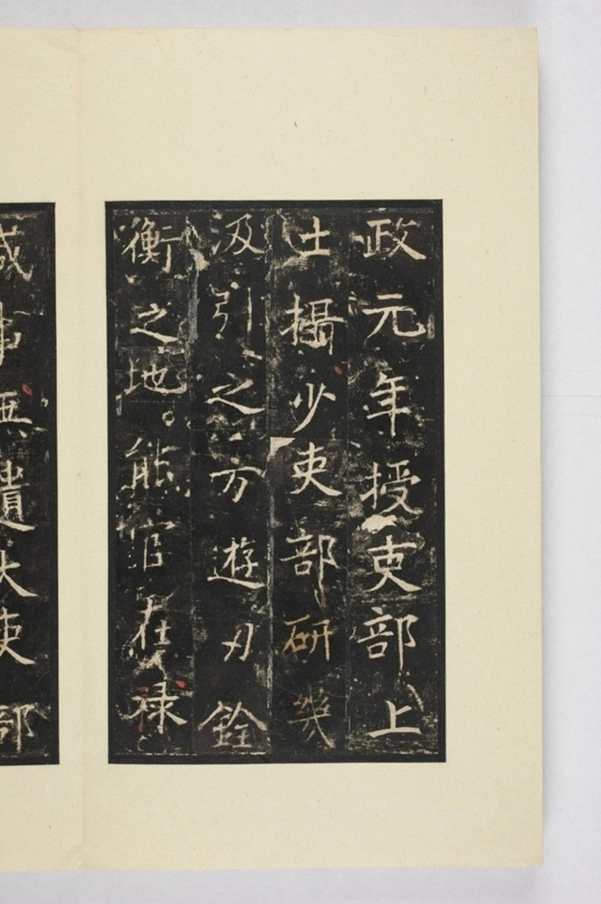 政元年授吏部上
士攝少吏部研幾
汲引之方遊刃銓
衡之地能官在祿
咸事無遺大吏部